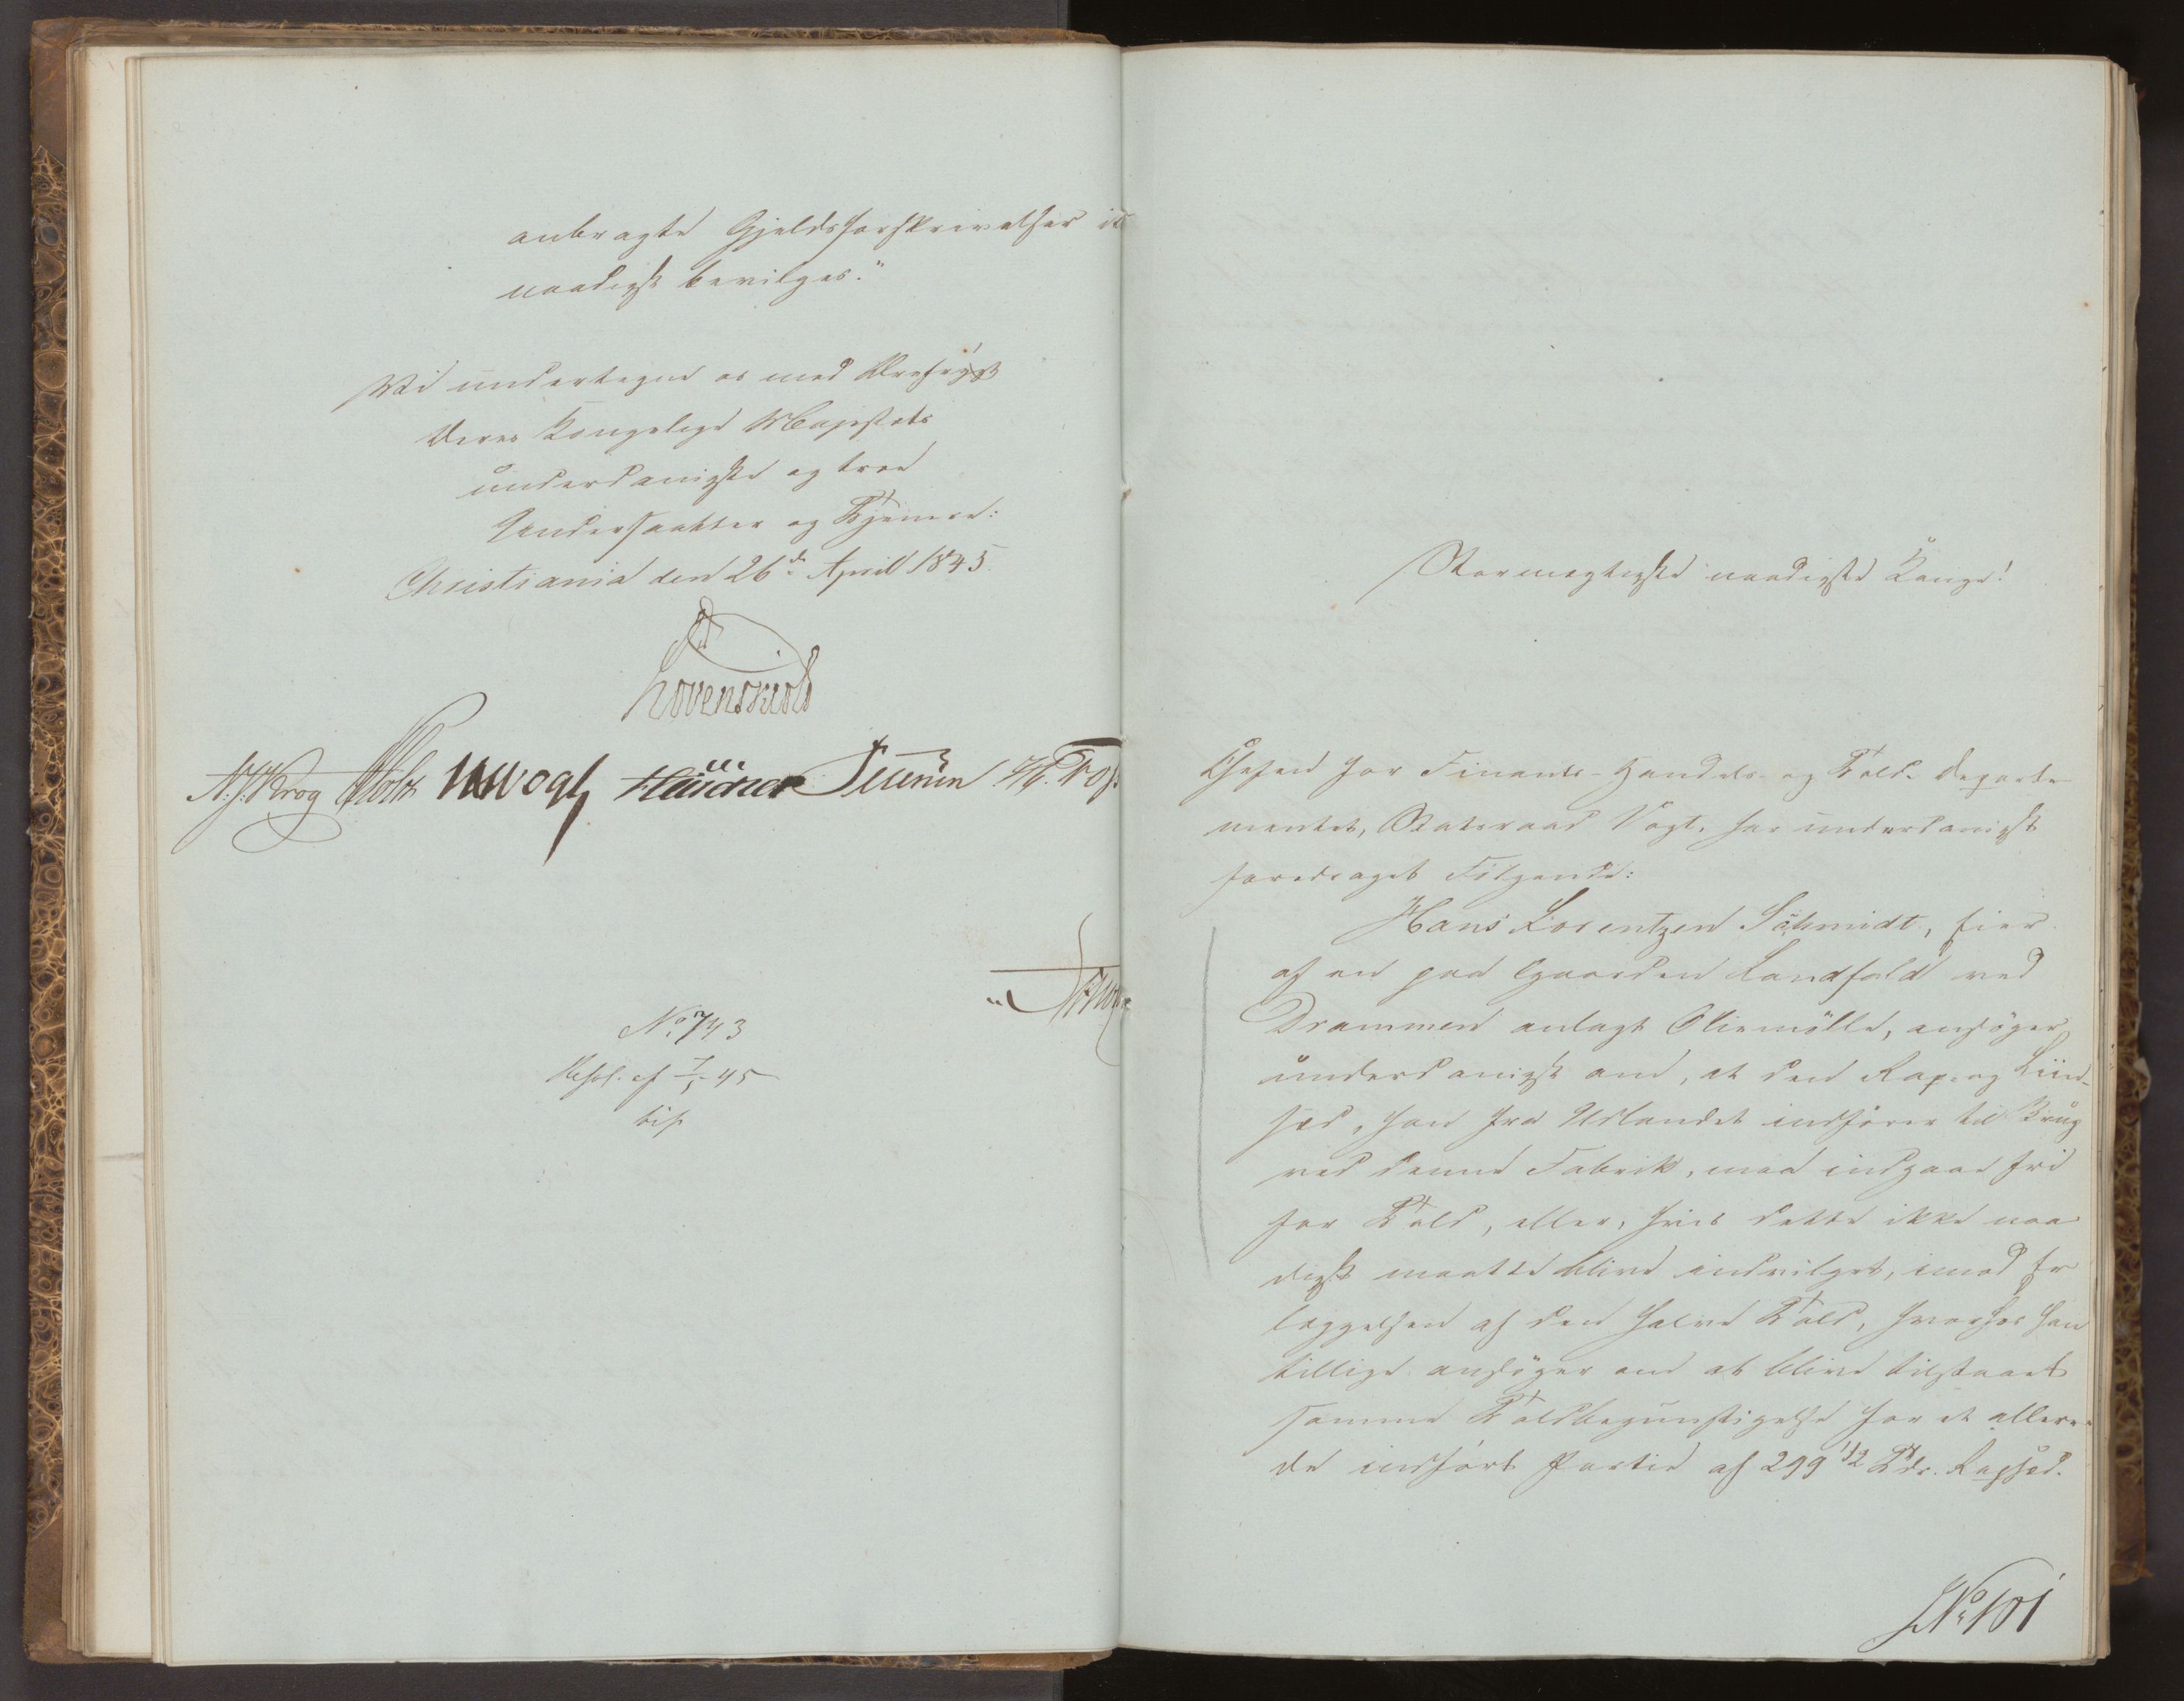 anbragte Gjeldsforskrivelser
naadigst bevilges."
Vi undertegne os med Ærefrygt
Deres Kongelige Majestæts
underdanigste og troe
Undersaatter og Tjenere:
Christiania den 26de April 1845.
Løvenskiold
N: J: Krog Holst JH Vogt Sibbern
No 743
Resol. af 7/5 - 45
bif.
Stormægtigste naadigste Konge!
Chefen for Finants- Handels- og Told- Departe
mentet, Statsraad Vogt, har underdanigst
foredraget Følgende:
Hans Lorentzen Schmidt, Eier
af en paa Gaarden Landfald ved
Drammen anlagt Oliemølle, ansøger
underdanigst om, at den Rap- og Liin-
sæd, han fra Udlandet indfører til Brug
ved denne Fabrik, maa indgaae fri
for Told, eller, hvis dette ikke naa
digst maatte blive indvilget, imod Er
læggelsen af den halve Told, hvorhos han
tillige ansøger om at blive tilstaaet
samme Toldbegunstigelse for et allere-
de indført Partie af 299 1/2 Tdr. Rapsæd.
No 101